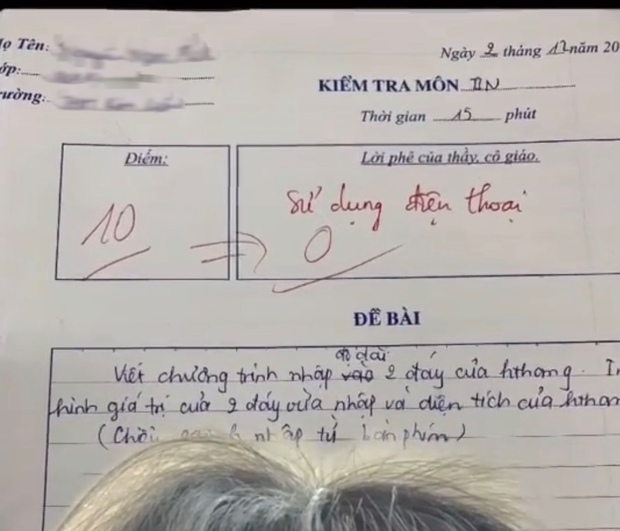 Họ Tên:
Ngày 2 tháng 12 năm 20
ớp:
KIỂM TRA MÔN TIN
rường:
Thời gian 15 phút
Điểm:
Lời phê của thầy, cô giáo.
10
Sử dụng điện thoại
0
ĐỀ BÀI
độ dài
Viết chương trình nhập vào 2 đáy của hthang. I
hình giá trị của 2 đáy vừa nhập và diện tích của hthan
nhập từ bàn phím)